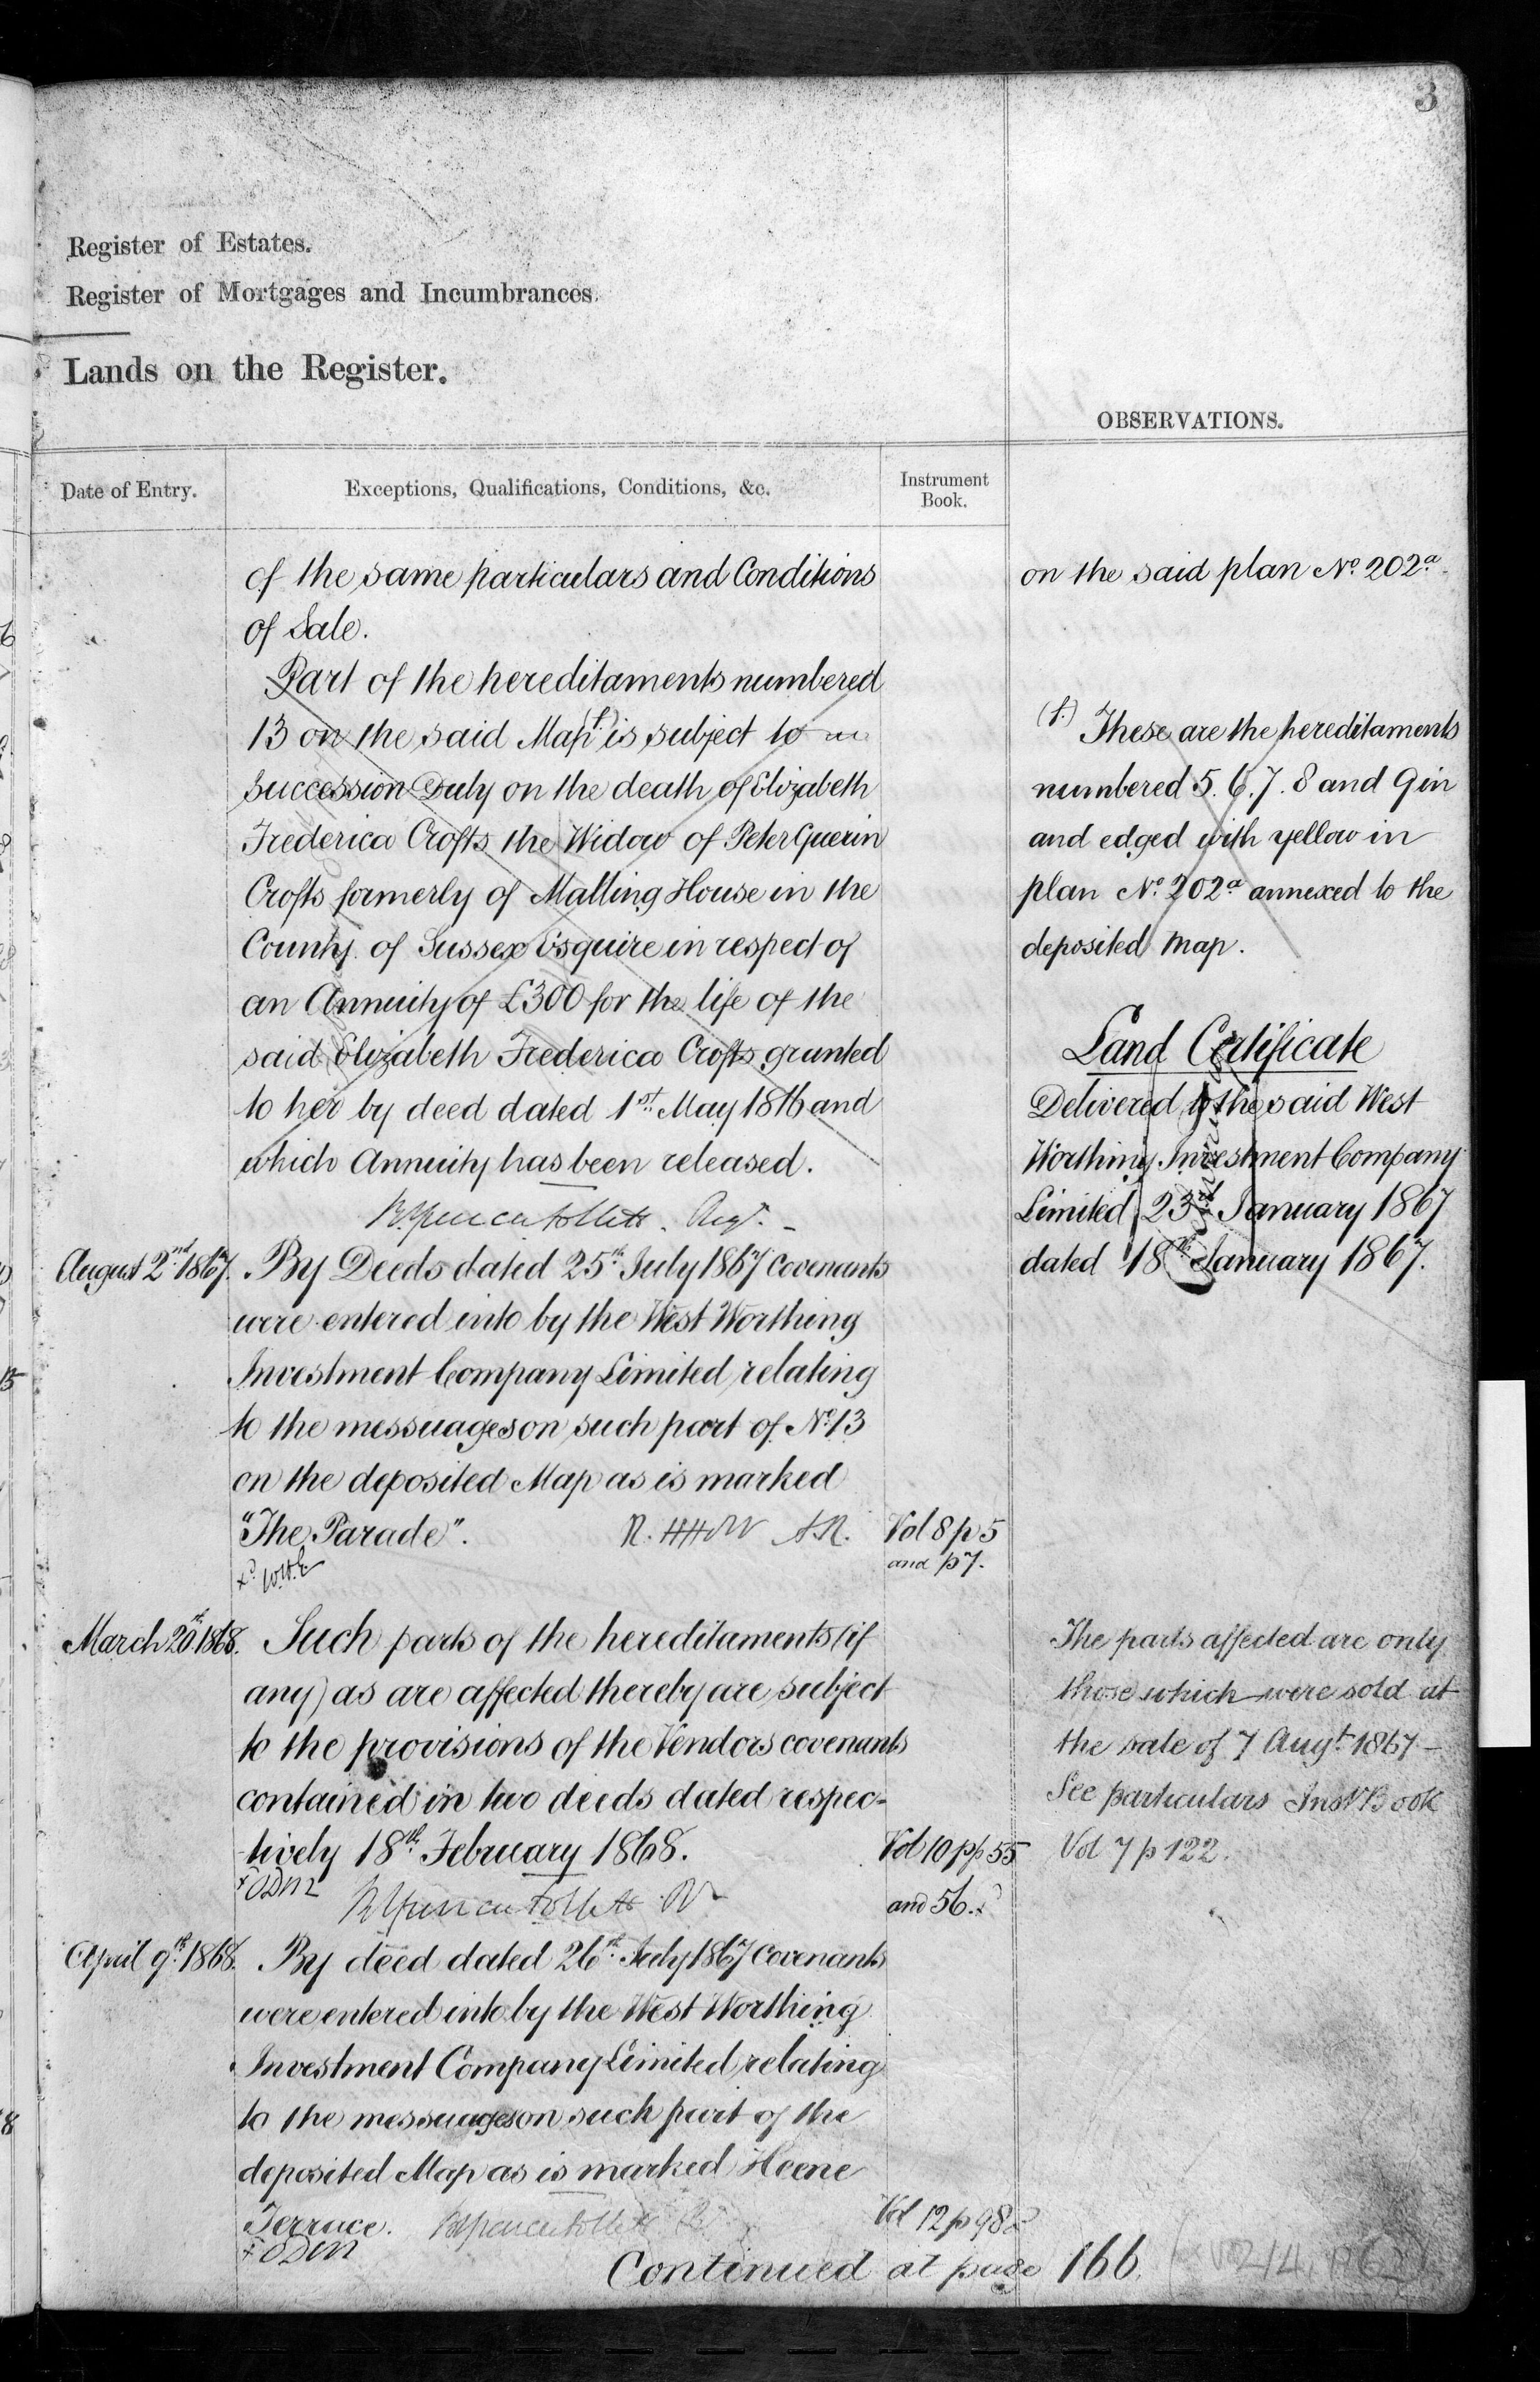 3
Register of Estates.
Register of Mortgages and Incumbrances.
Lands on the Register.
OBSERVATIONS.
Date of Entry.
Exceptions, Qualifications, Conditions, &c.
Instrument
Book.
of the same particulars and Conditions
of Sale.
Part of the hereditaments numbered
13 on the said Map (f.) is subject to
Succession Duty on the death of Elizabeth
Frederica Crofts the Widow of Peter Guerin
Crofts formerly of Malling House in the
County of Sussex Esquire in respect of
an Annuity of £300 for the life of the
said Elizabeth Frederica Crofts granted
to her by deed dated 1st May 1816 and
which Annuity has been released.
on the said plan No. 202a.
(f.) These are the hereditaments
numbered 5. 6. 7. 8 and 9 in
and edged with yellow in
plan No. 202a annexed to the
deposited Map.
Land Certificate
Delivered to the said West
Worthing Investment Company
Limited 23rd January 1867
dated 18th January 1867.
August 2nd 1867.
By Deeds dated 25th July 1867 covenants
were entered into by the West Worthing
Investment Company Limited relating
to the messuages on such part of No. 13
on the deposited Map as is marked
"The Parade".
Vol 8 p 5
and p 7.
March 20th 1868.
Such parts of the hereditaments (if
any) as are affected thereby are subject
to the provisions of the Vendors covenants
contained in two deeds dated respec-
tively 18th February 1868.
Vol 10 pp 55
and 56.
The parts affected are only
those which were sold at
the sale of 7 Augt. 1867 -
See particulars Inst. Book
Vol 7 p 122.
April 9th 1868.
By deed dated 26th July 1867 Covenants
were entered into by the West Worthing
Investment Company Limited relating
to the messuages on such part of the
deposited Map as is marked Heene
Terrace.
Vol 12 p 98
Continued at page 166.